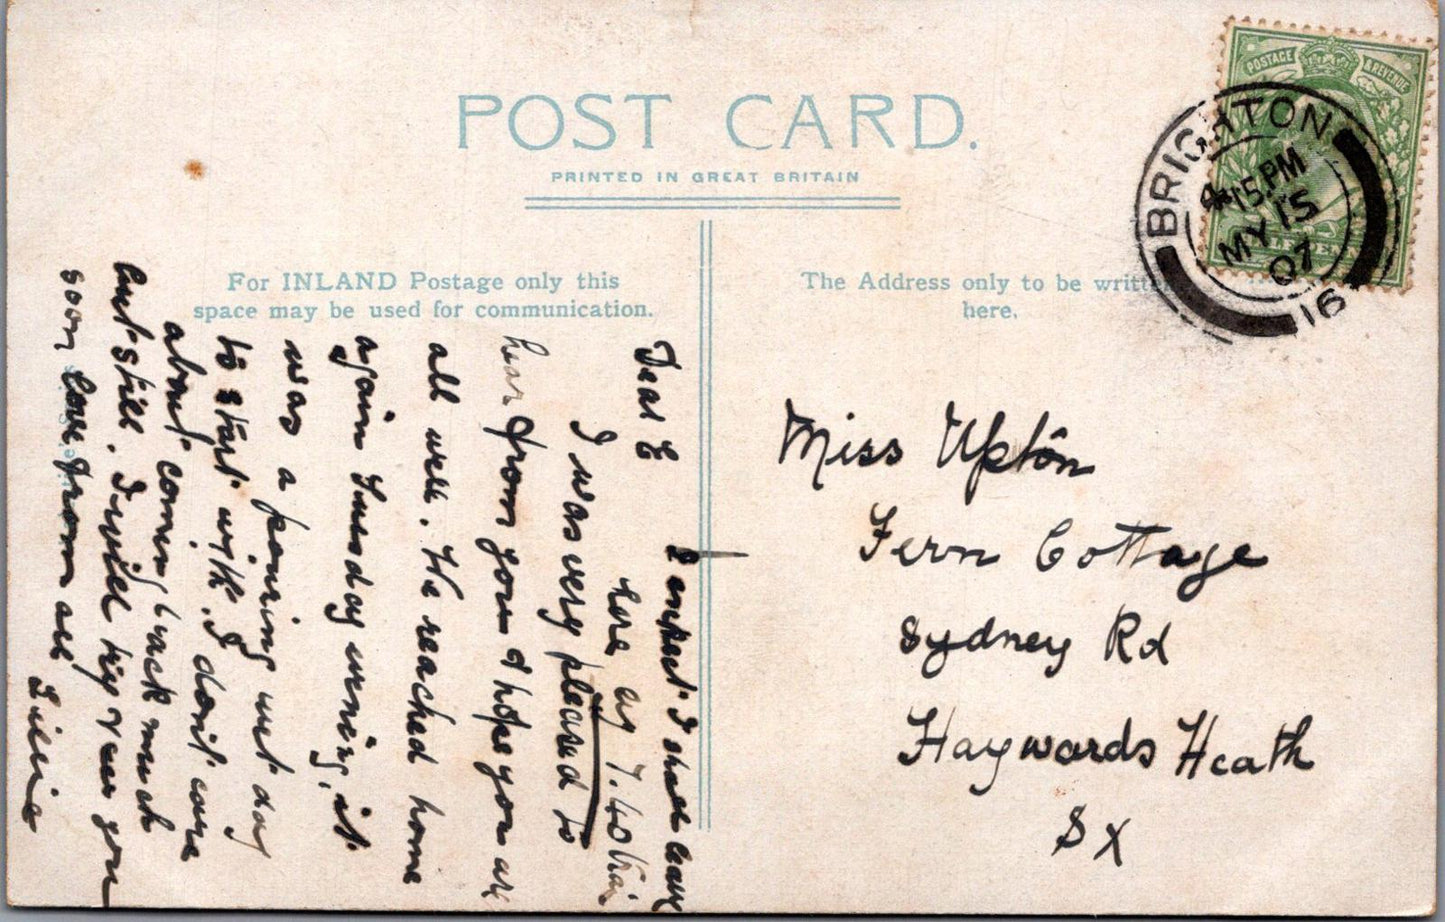 POST CARD.
PRINTED IN GREAT BRITAIN
For INLAND Postage only this
space may be used for communication.
The Address only to be written
here.
POSTAGE & REVENUE
BRIGHTON
15 PM
MY 15
07
16
Miss Upton
Fern Cottage
Sydney Rd
Haywards Heath
Sx
I expect I shall leave
here by 7.40 train
Dear E
I was very pleased to
hear from you & hope you are
all well. We reached home
again Tuesday evening, it
was a pouring wet day
to start with. I don't care
about coming back much
but still. I will try & see you
soon love from all
Lillie